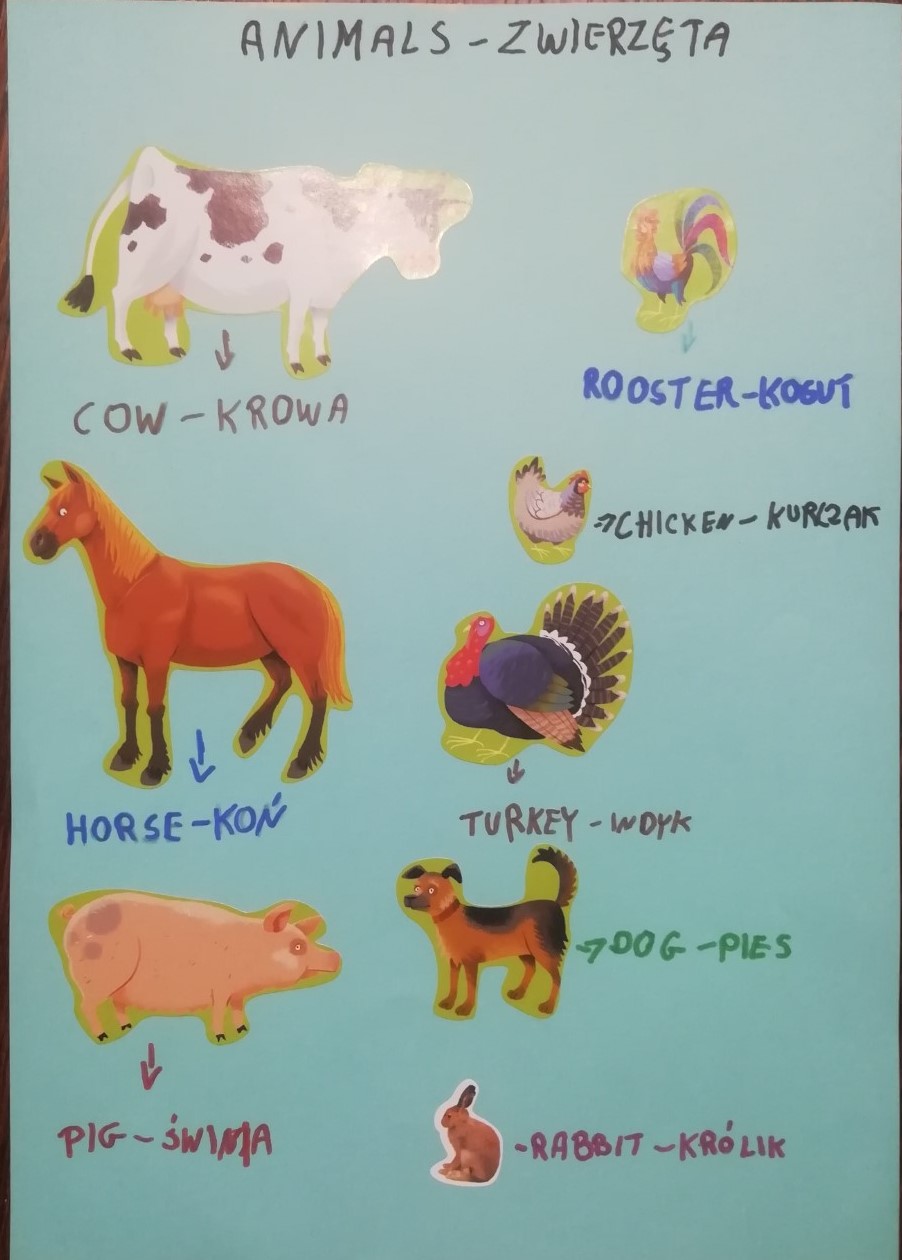 ANIMALS - ZWIERZĘTA
COW - KROWA
ROOSTER - KOGUT
CHICKEN - KURCZAK
HORSE - KOŃ
TURKEY - INDYK
DOG - PIES
PIG - ŚWINIA
- RABBIT - KRÓLIK